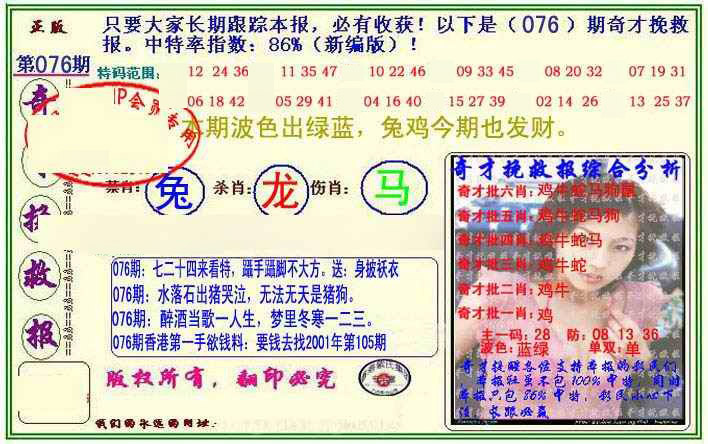 正版
只要大家长期跟踪本报，必有收获！以下是（076）期奇才挽救
报。中特率指数：86%（新编版）！
第076期
特码范围：
12 24 36 11 35 47 10 22 46 09 33 45 08 20 32 07 19 31
06 18 42 05 29 41 04 16 40 15 27 39 02 14 26 13 25 37
P会员专用
本期波色出绿蓝，兔鸡今期也发财。
奇
救
报
禁肖：兔 杀肖：龙 伤肖：马
奇才挽救报综合分析
奇才批六肖：鸡牛蛇马狗鼠
奇才批五肖：鸡牛蛇马狗
奇才批四肖：鸡牛蛇马
奇才批三肖：鸡牛蛇
奇才批二肖：鸡牛
奇才批一肖：鸡
主一码：28 防：08 13 36
波色：蓝绿 单双：单
奇才提醒各位支持本报的彩民们
本报组虽不包100%中特，同时
本报只包86%中特，彩民小心下
注，长跟必赢
076期：七二十四来看特，蹑手蹑脚不大方。送：身披袄衣
076期：水落石出猪哭泣，无法无天是猪狗。
076期：醉酒当歌一人生，梦里冬寒一二三。
076期香港第一手欲钱料：要钱去找2001年第105期
版权所有，翻印必究
我们的永远的网址：